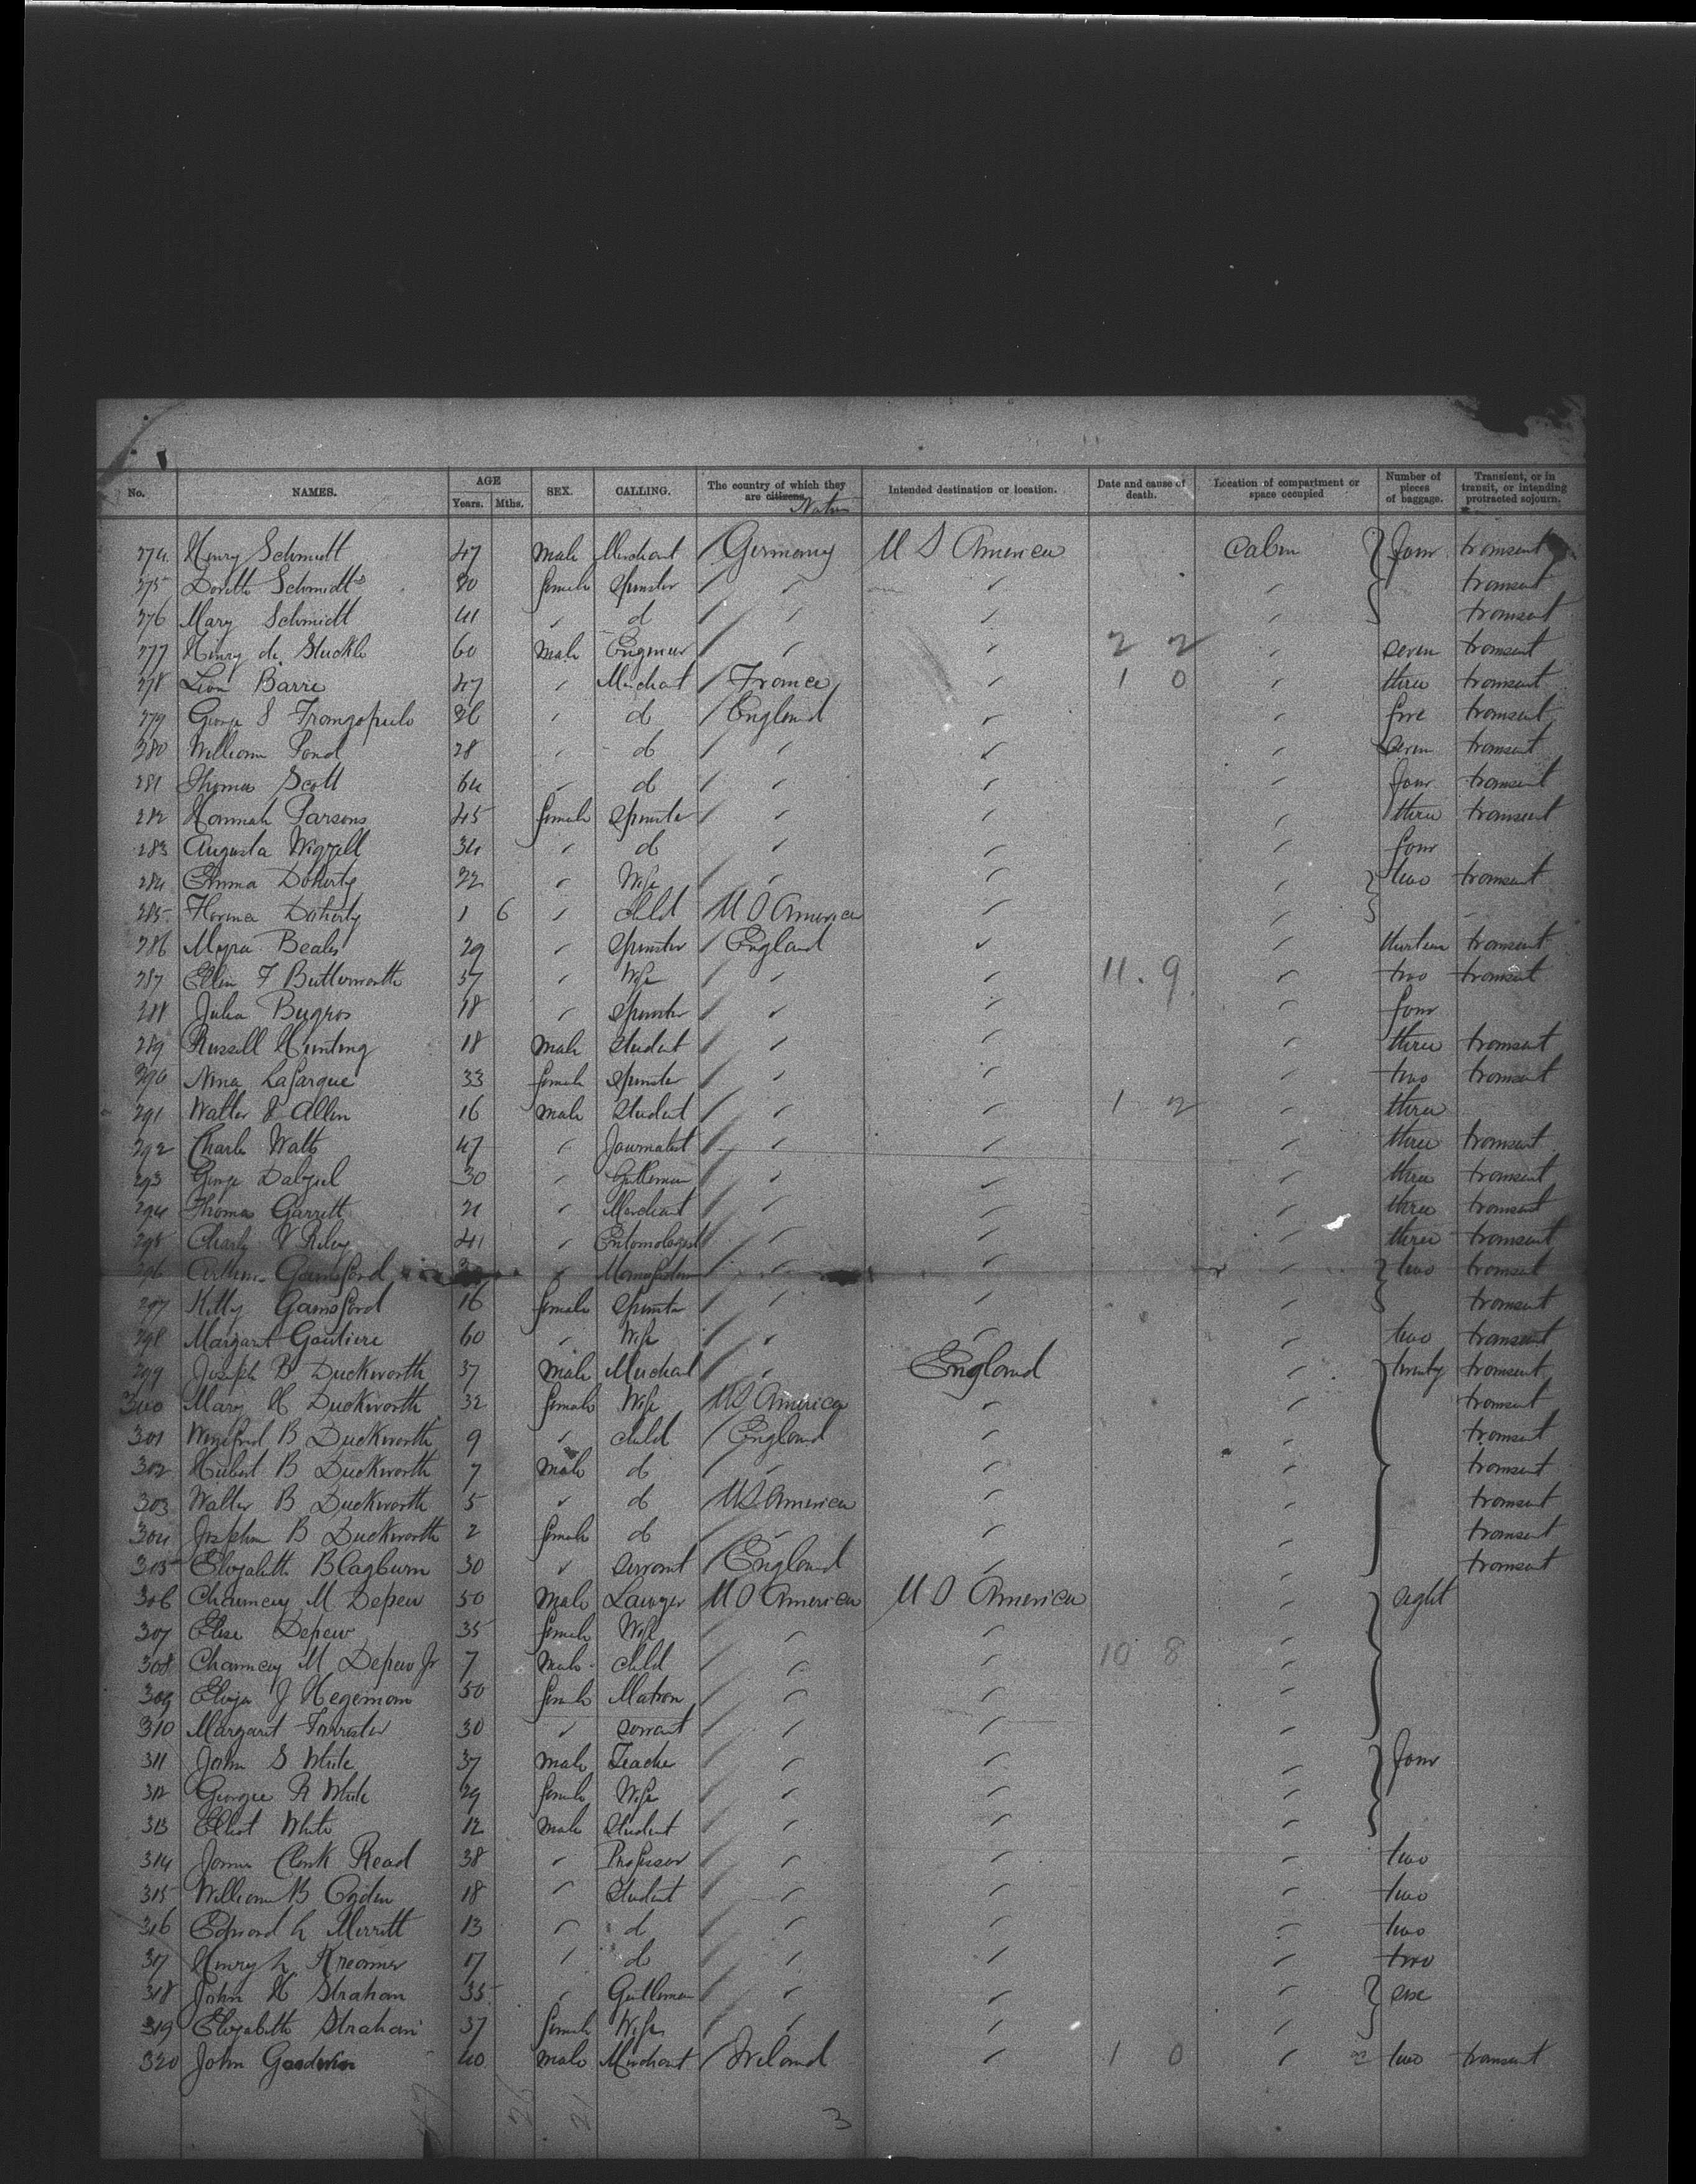 No. NAMES. AGE Years. Mths. SEX. CALLING. The country of which they are citizens Natives Intended destination or location. Date and cause of death. Location of compartment or space occupied Number of pieces of baggage. Transient, or in transit, or intending protracted sojourn.
274 Henry Schmidt 47 Male Merchant / Germany U S America Cabin four transient
275 Dorette Schmidt 20 female Spinster / " " " transient
276 Mary Schmidt 41 " d / " " " transient
277 Henry de Stuckle 60 Male Engineer / " " 2 2 " seven transient
278 Leon Barre 47 " Merchant / France " 1 0 " three transient
279 George S 26 " d / England " " five transient
280 William Pond 28 " d / " " " seven transient
281 Thomas Scott 64 " d / " " " four transient
282 Hannah Parsons 45 female Spinster / " " " three transient
283 Augusta 34 " d " " " four
284 Emma Doherty 22 " Wife / " " " two transient
285 Doherty 1 6 " child U S America " "
286 Myra Beales 29 " Spinster / England " " thirteen transient
287 Ellen F Butterworth 37 " Wife / " " 11. 9 " two transient
288 Julia 18 " Spinster / " " " four
289 Russell Hunting 18 Male Student / " " " three transient
290 Nina Lafargue 33 female Spinster / " " " two transient
291 Walter S Allen 16 male Student / " " 1 2 " three
292 Charles Watts 47 " Journalist / " " " three transient
293 George Dalziel 30 " Gentleman " " " three transient
294 Thomas Garrett 21 " Merchant / " " " three transient
295 Charles V Riley 41 " Entomologist / " " " three transient
296 Arthur Gainsford " " " " two transient
297 Kitty Gainsford 16 female Spinster / " " " transient
298 Margaret Gautiere 60 " Wife / " " " two transient
299 Joseph B Duckworth 37 Male Merchant / " England " twenty transient
300 Mary H Duckworth 32 female Wife U S America " " transient
301 Winifred B Duckworth 9 " child / England " " transient
302 Hubert B Duckworth 7 Male d / " " " transient
303 Walter B Duckworth 5 " d U S America " " transient
304 Josephine B Duckworth 2 female d / " " " transient
305 Elizabeth Blagburn 30 " servant / England " " transient
306 Chauncey M Depew 50 Male Lawyer U S America U S America " eight
307 Elise Depew 35 female Wife / " " "
308 Chauncey M Depew Jr 7 Male child / " " 10 8 "
309 Eliza J Hegeman 50 female Matron / " " "
310 Margaret Forrester 30 " servant / " " "
311 John S White 37 Male Teacher / " " " four
312 Georgie A White 29 female Wife / " " "
313 Elliot White 12 Male Student / " " "
314 Clark Read 38 " Professor / " " " two
315 William B Ogden 18 " Student / " " " two
316 Edmond L Merritt 13 " d / " " " two
317 Henry L 17 " d / " " " two
318 John H Strahan 35 " Gentleman / " " "
319 Elizabeth Strahan 37 female Wife / " " "
320 John Goodwin 40 male Merchant / Ireland " 1 0 " two transient
3